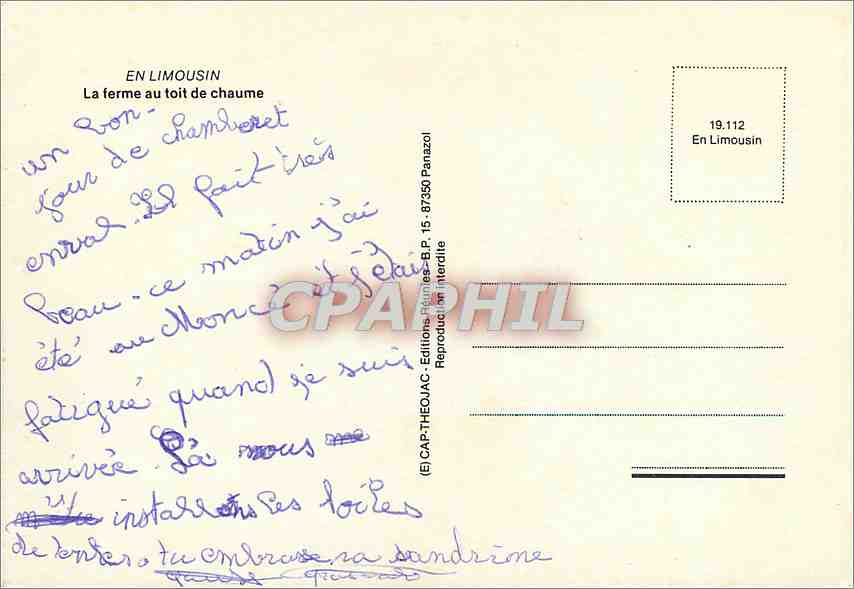 EN LIMOUSIN
La ferme au toit de chaume
un bon-
jour de chamberet
Il fait très
beau. ce matin j'ai
été au et j'étais
fatigué quand je suis
arrivée. Là nous
installons les toiles
de tentes. tu embrasse sandrine
(E) CAP-THEOJAC - Editions Réunies - B.P. 15 - 87350 Panazol
Reproduction interdite
19.112
En Limousin
CPAPHIL